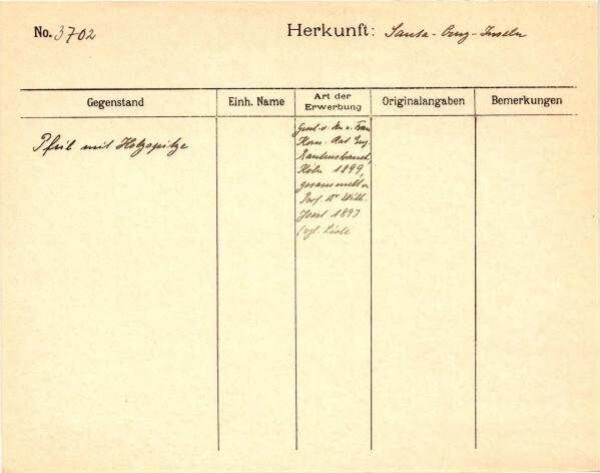 No. 3702
Herkunft: Santa-Cruz-Inseln
Gegenstand
Einh. Name
Art der
Erwerbung
Originalangaben
Bemerkungen
Pfeil mit Holzspitze
Gesch. v. Hrn u. Frau
Kom. Rat Eug.
Rautenstrauch,
Köln 1899,
gesammelt v.
Prof. Dr Wilh.
Joest 1897
(vgl. Liste